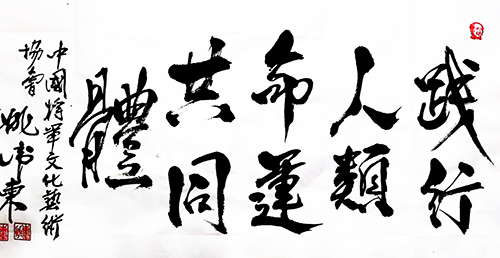 践行
人類
命運
共同
體
中國将軍文化藝術
協會
姚沛東